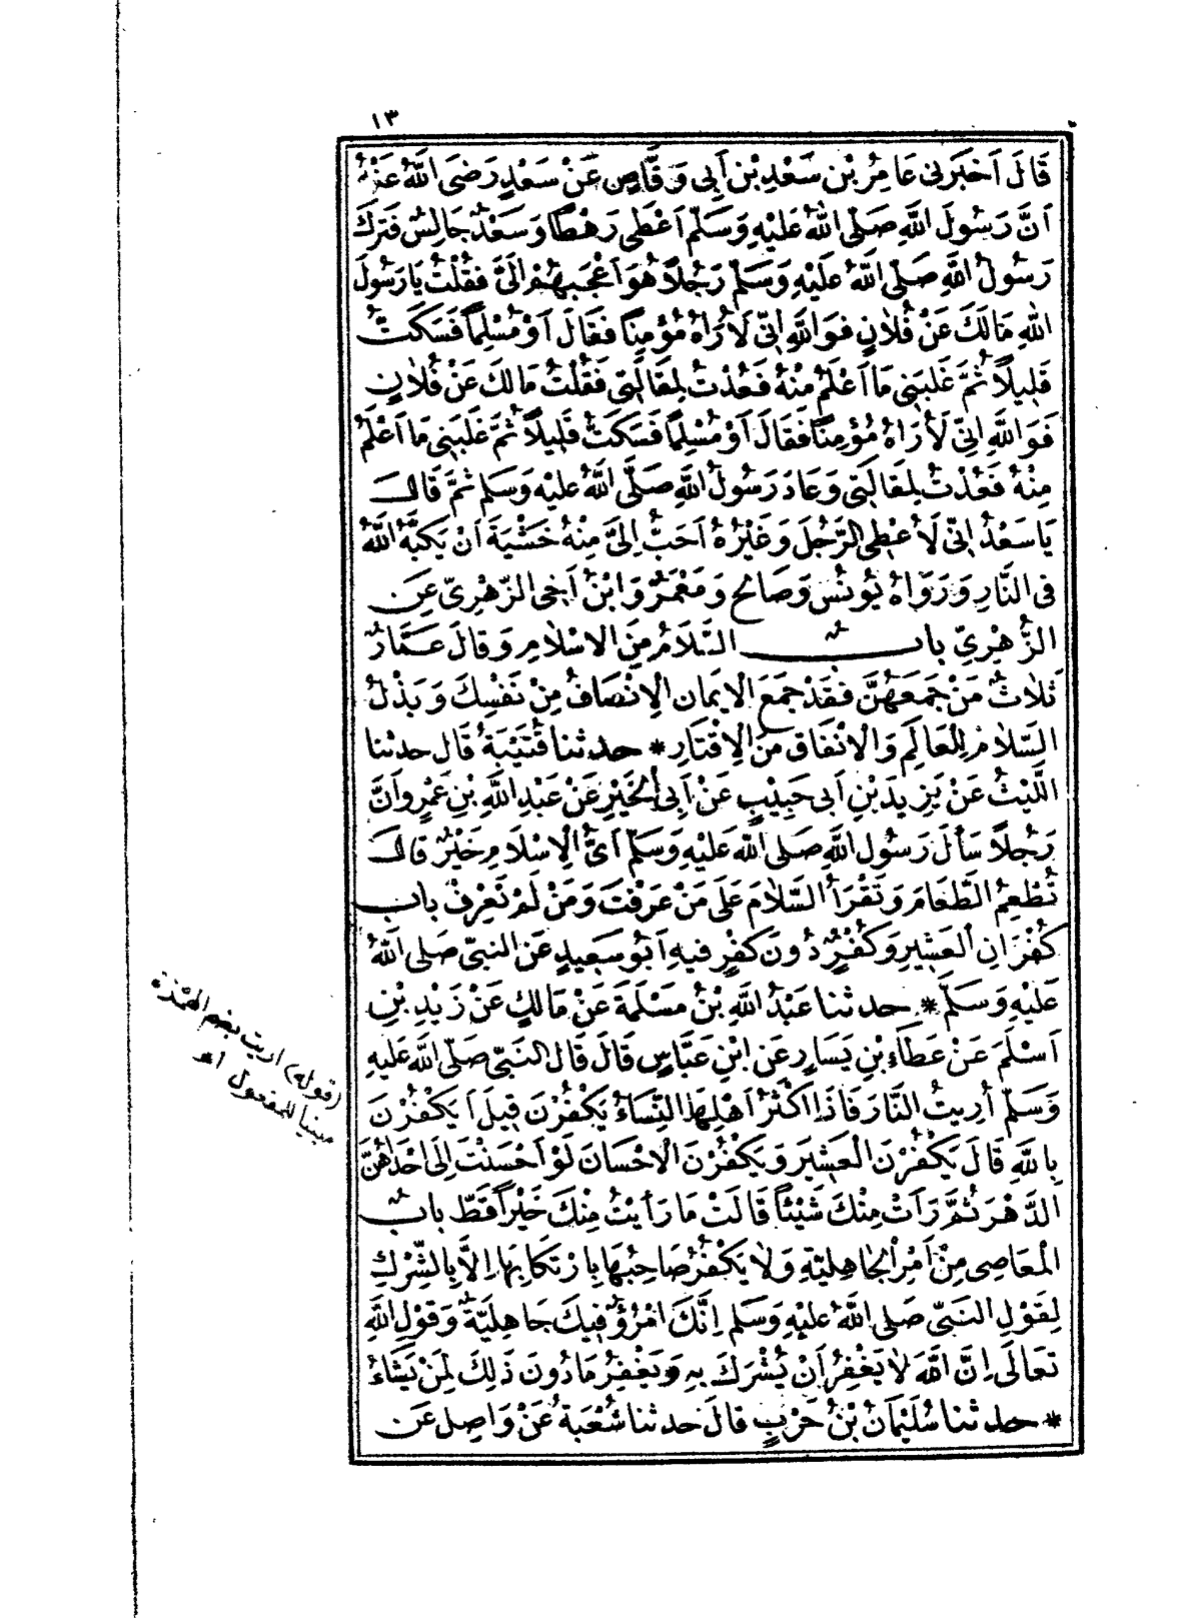 ١٣
قَالَ اَخْبَرَنِي عَامِرُ بْنُ سَعْدِ بْنِ اَبِي وَقَّاصٍ عَنْ سَعْدٍ رَضَىَ اللّٰهُ عَنْهُ
اَنَّ رَسُولَ اللّٰهِ صَلَّى اللّٰهُ عَلَيْهِ وَسَلَّمَ اَعْطٰى رَهْطًا وَسَعْدٌ جَالِسٌ فَتَرَكَ
رَسُولُ اللّٰهِ صَلَّى اللّٰهُ عَلَيْهِ وَسَلَّمَ رَجُلاً هُوَ اَعْجَبُهُمْ اِلَىَّ فَقُلْتُ يَا رَسُولَ
اللّٰهِ مَالَكَ عَنْ فُلَانٍ فَوَاللّٰهِ اِنِّى لَأُرَاهُ مُؤْمِنًا فَقَالَ اَوْ مُسْلِمًا فَسَكَتُّ
قَلِيلاً ثُمَّ غَلَبَنِى مَا اَعْلَمُ مِنْهُ فَعُدْتُ لِمَقَالَتِى فَقُلْتُ مَالَكَ عَنْ فُلَانٍ
فَوَاللّٰهِ اِنِّى لَأُرَاهُ مُؤْمِنًا فَقَالَ اَوْ مُسْلِمًا فَسَكَتُّ قَلِيلاً ثُمَّ غَلَبَنِى مَا اَعْلَمُ
مِنْهُ فَعُدْتُ لِمَقَالَتِى وَعَادَ رَسُولُ اللّٰهِ صَلَّى اللّٰهُ عَلَيْهِ وَسَلَّمَ ثُمَّ قَالَ
يَا سَعْدُ اِنِّى لَأُعْطِى الرَّجُلَ وَغَيْرُهُ اَحَبُّ اِلَىَّ مِنْهُ خَشْيَةَ اَنْ يَكُبَّهُ اللّٰهُ
فِى النَّارِ وَرَوَاهُ يُونُسُ وَصَالِحٌ وَمَعْمَرٌ وَابْنُ اَخِى الزُّهْرِىِّ عَنِ
الزُّهْرِىِّ بابٌ السَّلَامُ مِنَ الْاِسْلَامِ وَقَالَ عَمَّارٌ
ثَلَاثٌ مَنْ جَمَعَهُنَّ فَقَدْ جَمَعَ الْاِيمَانَ الْاِنْصَافُ مِنْ نَفْسِكَ وَبَذْلُ
السَّلَامِ لِلْعَالَمِ وَالْاِنْفَاقُ مِنَ الْاِقْتَارِ * حدثنا قُتَيْبَةُ قَالَ حدثنا
اللَّيْثُ عَنْ يَزِيدَ بْنِ اَبِى حَبِيْبٍ عَنْ اَبِى الْخَيْرِ عَنْ عَبْدِ اللّٰهِ بْنِ عَمْرٍو اَنَّ
رَجُلاً سَأَلَ رَسُولَ اللّٰهِ صَلَّى اللّٰهُ عَلَيْهِ وَسَلَّمَ اَىُّ الْاِسْلَامِ خَيْرٌ قَالَ
تُطْعِمُ الطَّعَامَ وَتَقْرَأُ السَّلَامَ عَلَى مَنْ عَرَفْتَ وَمَنْ لَمْ تَعْرِفْ باب
كُفْرَانِ الْعَشِيرِ وَكُفْرٍ دُونَ كُفْرٍ فِيهِ اَبُو سَعِيدٍ عَنِ النَّبِىِّ صَلَّى اللّٰهُ
عَلَيْهِ وَسَلَّمَ * حدثنا عَبْدُ اللّٰهِ بْنُ مَسْلَمَةَ عَنْ مَالِكٍ عَنْ زَيْدِ بْنِ
اَسْلَمَ عَنْ عَطَاءِ بْنِ يَسَارٍ عَنِ ابْنِ عَبَّاسٍ قَالَ قَالَ النَّبِىُّ صَلَّى اللّٰهُ عَلَيْهِ
وَسَلَّمَ أُرِيتُ النَّارَ فَاِذَا اَكْثَرُ اَهْلِهَا النِّسَاءُ يَكْفُرْنَ قِيلَ اَيَكْفُرْنَ
بِاللّٰهِ قَالَ يَكْفُرْنَ الْعَشِيرَ وَيَكْفُرْنَ الْاِحْسَانَ لَوْ اَحْسَنْتَ اِلَى اِحْدَاهُنَّ
الدَّهْرَ ثُمَّ رَاَتْ مِنْكَ شَيْئًا قَالَتْ مَا رَأَيْتُ مِنْكَ خَيْرًا قَطُّ بابٌ
الْمَعَاصِى مِنْ اَمْرِ الْجَاهِلِيَّةِ وَلَا يَكْفُرُ صَاحِبُهَا بِارْتِكَابِهَا اِلَّا بِالشِّرْكِ
لِقَوْلِ النَّبِىِّ صَلَّى اللّٰهُ عَلَيْهِ وَسَلَّمَ اِنَّكَ امْرُؤٌ فِيكَ جَاهِلِيَّةٌ وَقَوْلِ اللّٰهِ
تَعَالَى اِنَّ اللّٰهَ لَا يَغْفِرُ اَنْ يُشْرَكَ بِهِ وَيَغْفِرُ مَا دُونَ ذَلِكَ لِمَنْ يَشَاءُ
* حدثنا سُلَيْمَانُ بْنُ حَرْبٍ قَالَ حدثنا شُعْبَةُ عَنْ وَاصِلٍ عَنِ
(قوله) اريت بضم الهمزة
مبنيا للمفعول اه